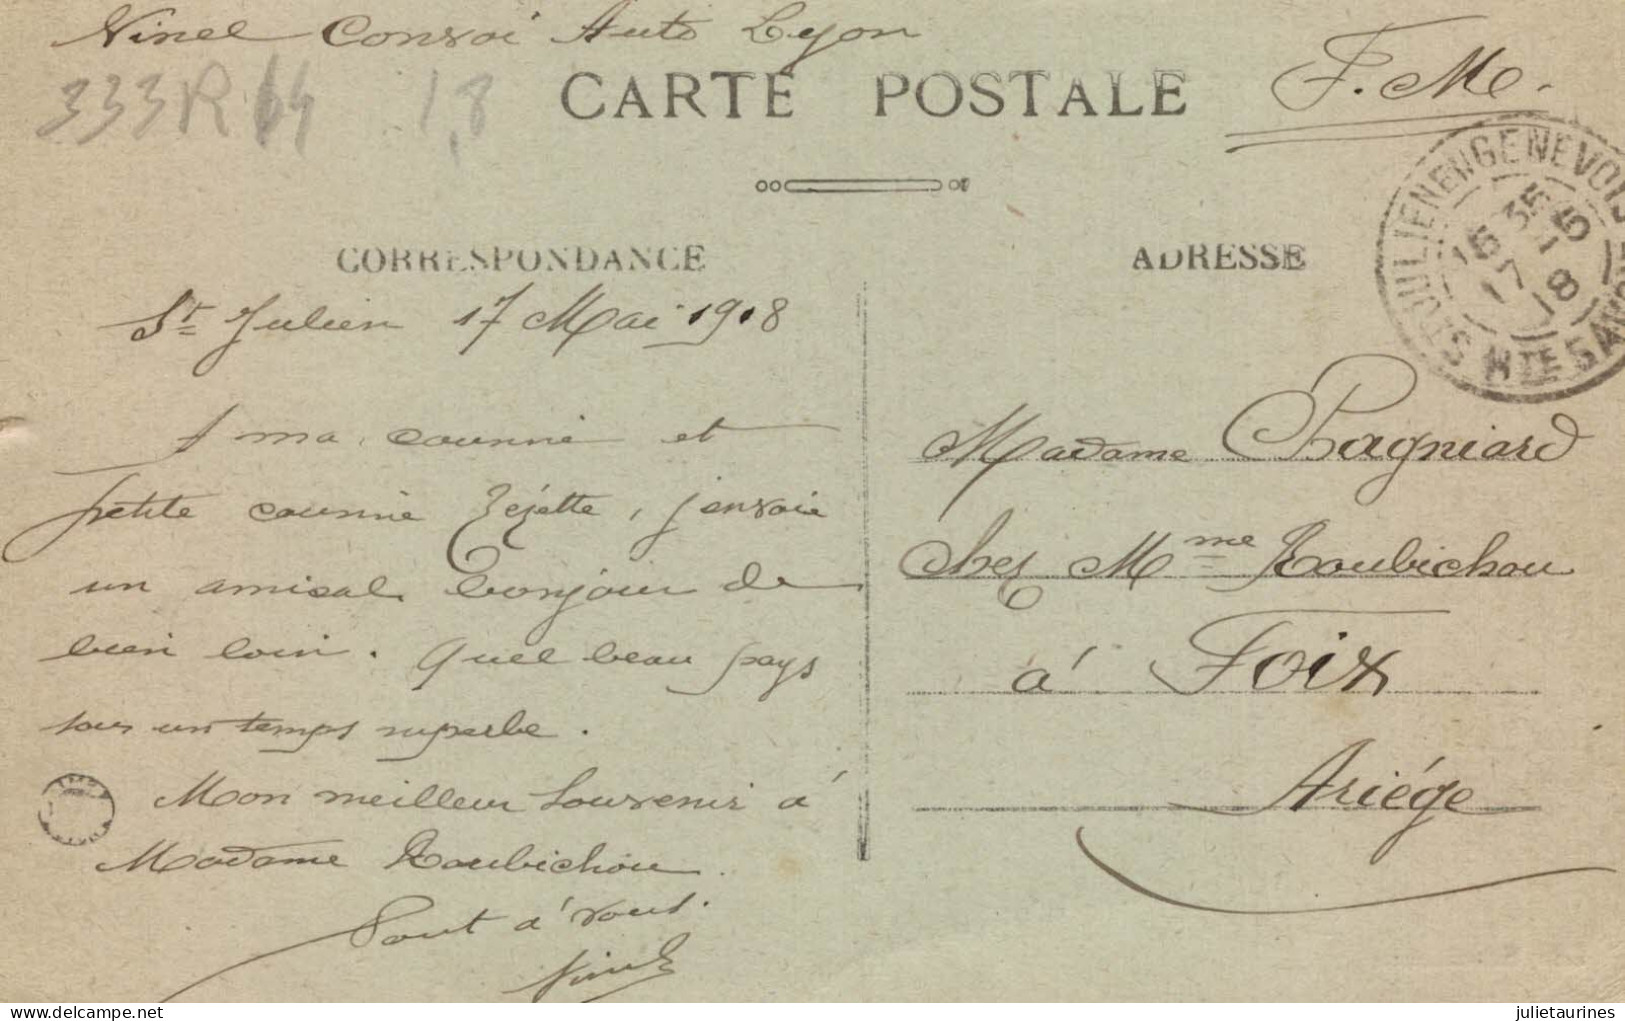 Ninel Convoi Auto Lyon
333R 64 1,8
CARTE POSTALE
F.M.
ST JULIEN EN GENEVOIS
15 35
17 - 5
18
HTE SAVOIE
CORRESPONDANCE
ADRESSE
St Julien 17 Mai 1918
A ma cousine et
petite cousine Zézette, j'envoie
un amical bonjour de
bien loin. Quel beau pays
sous un temps superbe.
Mon meilleur Souvenir à
Madame Roubichou.
Tout à vous.
Ninel
Madame Pagniard
Chez Mme Roubichou
à Foix
Ariége
delcampe.net
julietaurines